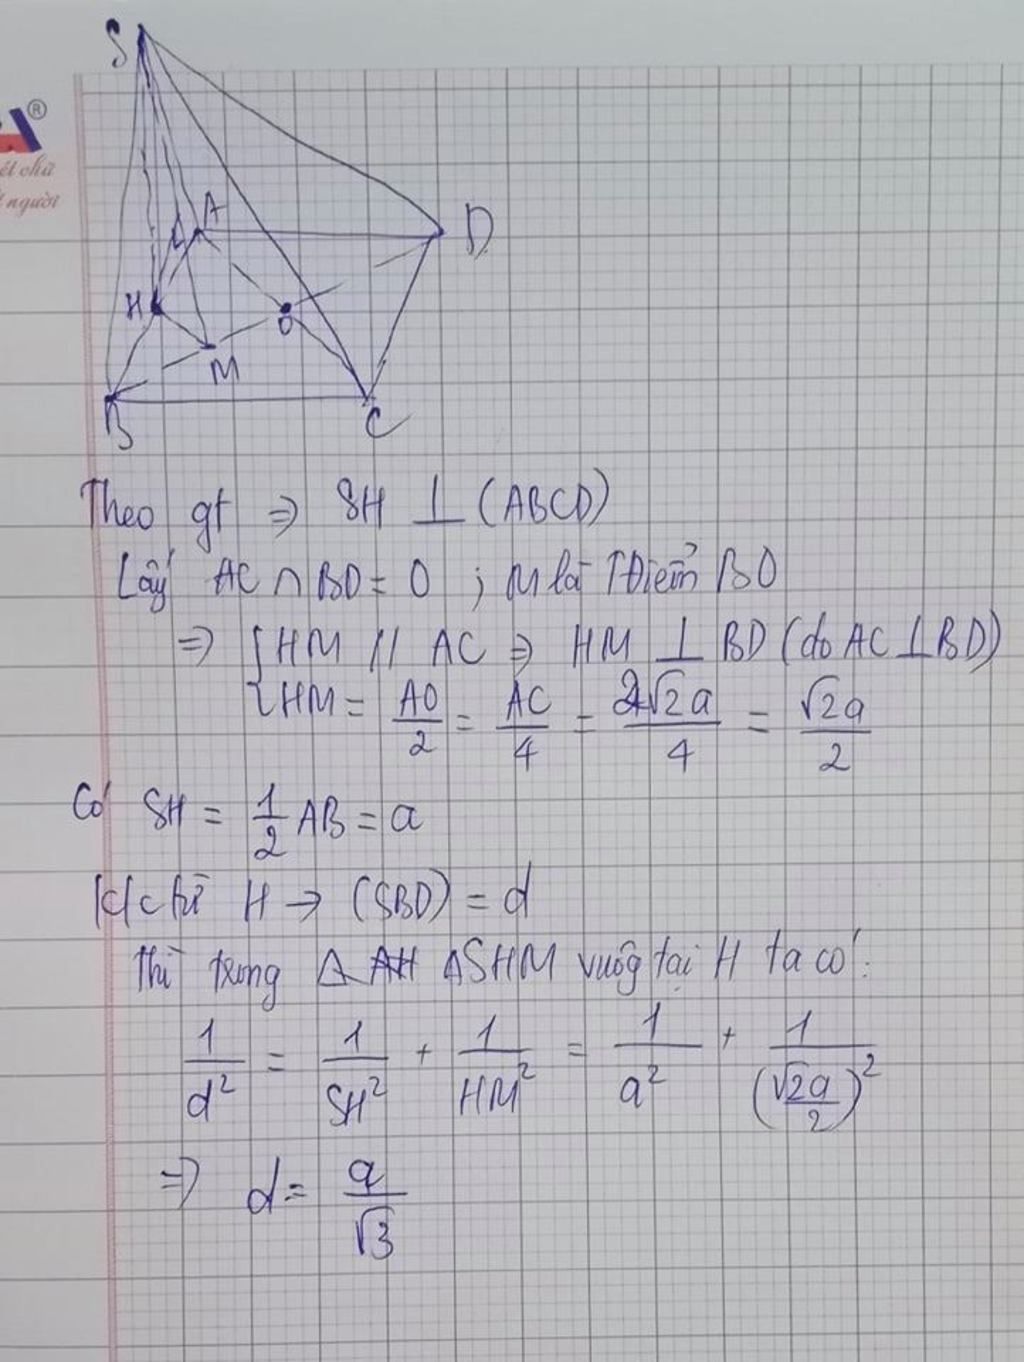 S
A
D
H
O
M
B
C
®
ết chữ
t người
Theo gt ⇒ SH ⊥ (ABCD)
Lấy AC ∩ BD = O ; M là TĐiểm BO
⇒ { HM // AC ⇒ HM ⊥ BD (do AC ⊥ BD)
HM = AO/2 = AC/4 = 2√2a/4 = √2a/2
Có SH = 1/2 AB = a
K/c từ H → (SBD) = d
Thì trong Δ ΔSHM vuông tại H ta có:
1/d² = 1/SH² + 1/HM² = 1/a² + 1/(√2a/2)²
⇒ d = a/√3